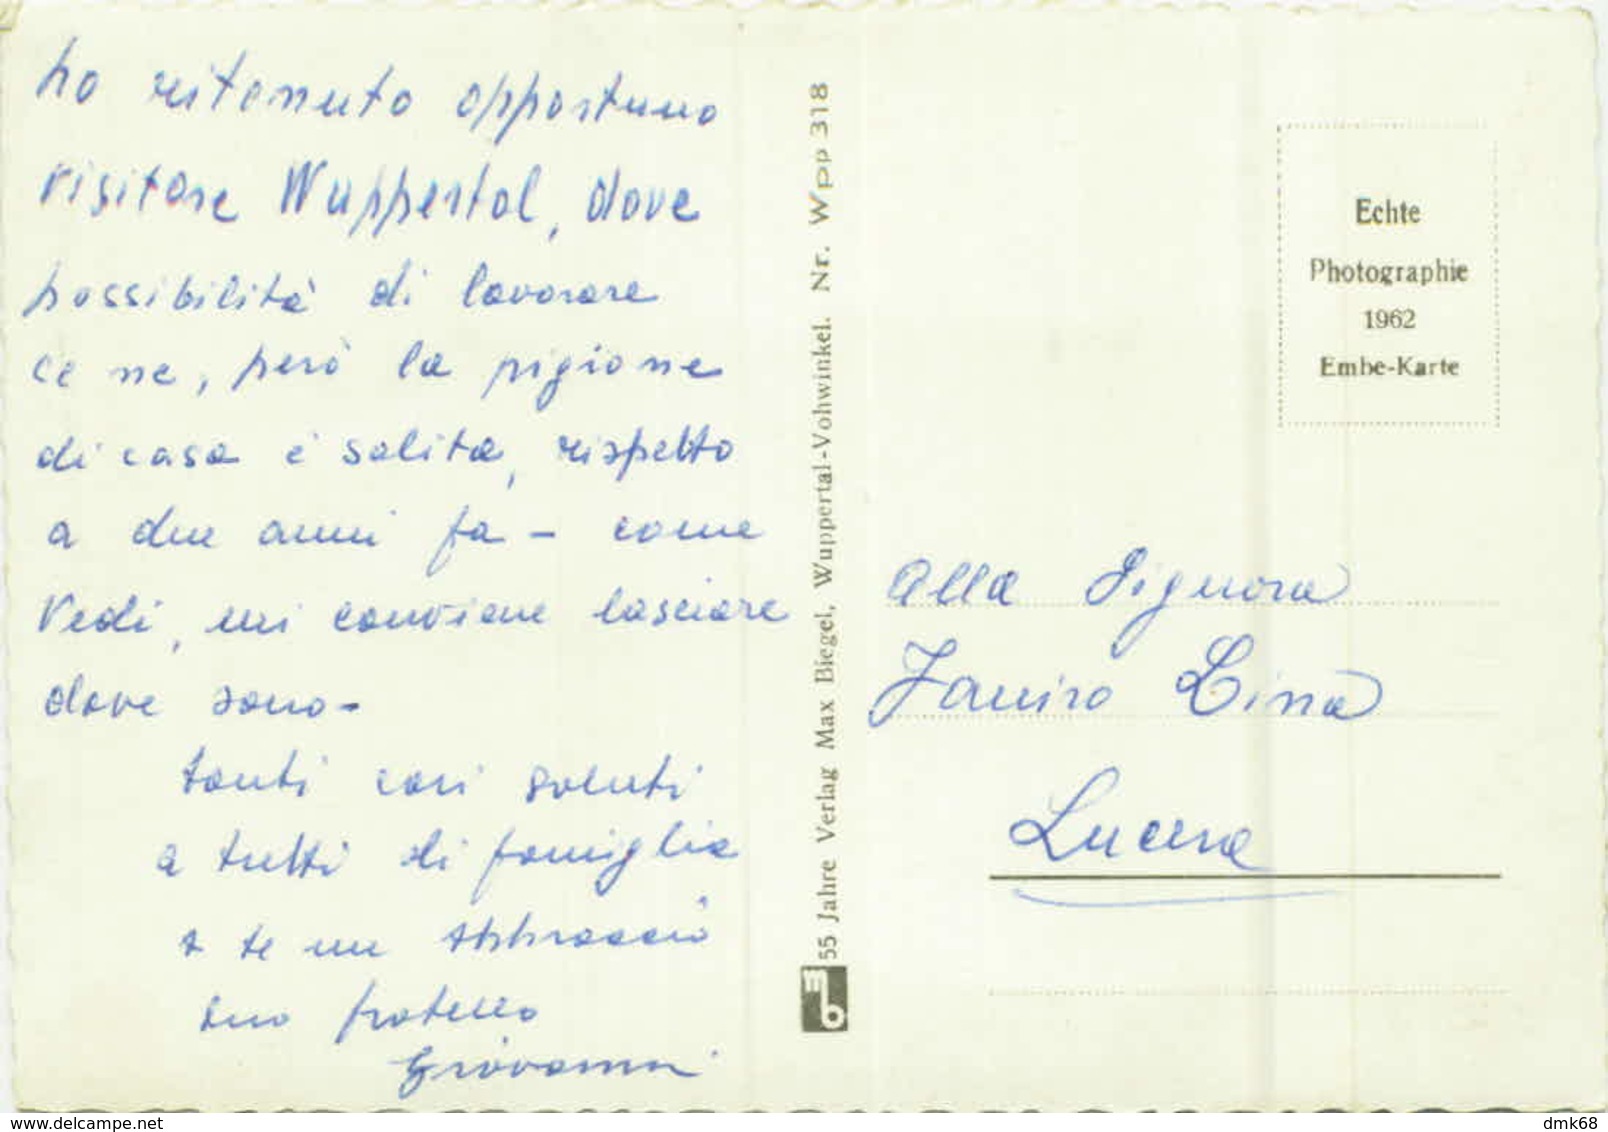 ho ritenuto opportuno
visitare Wuppertal, dove
possibilità di lavorare
ce ne, però la pigione
di casa è salita, rispetto
a due anni fa - come
Vedi, mi conviene lasciare
dove sono -
tanti cari saluti
a tutti di famiglia
a te un abbraccio
tuo fratello
Giovanni
55 Jahre Verlag Max Biegel, Wuppertal-Vohwinkel. Nr. Wpp 318
mb
Echte
Photographie
1962
Embe-Karte
Alla Signora
Ianiro Lina
Lucera
delcampe.net
dmk68